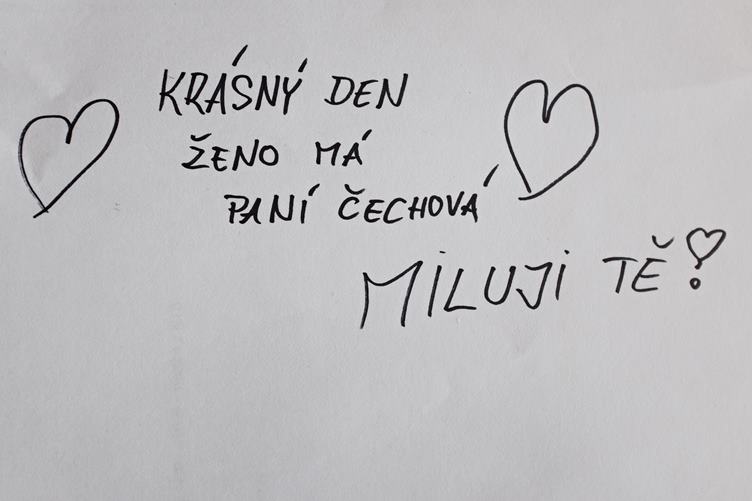 KRÁSNÝ DEN
ŽENO MÁ
PANÍ ČECHOVÁ
MILUJI TĚ!